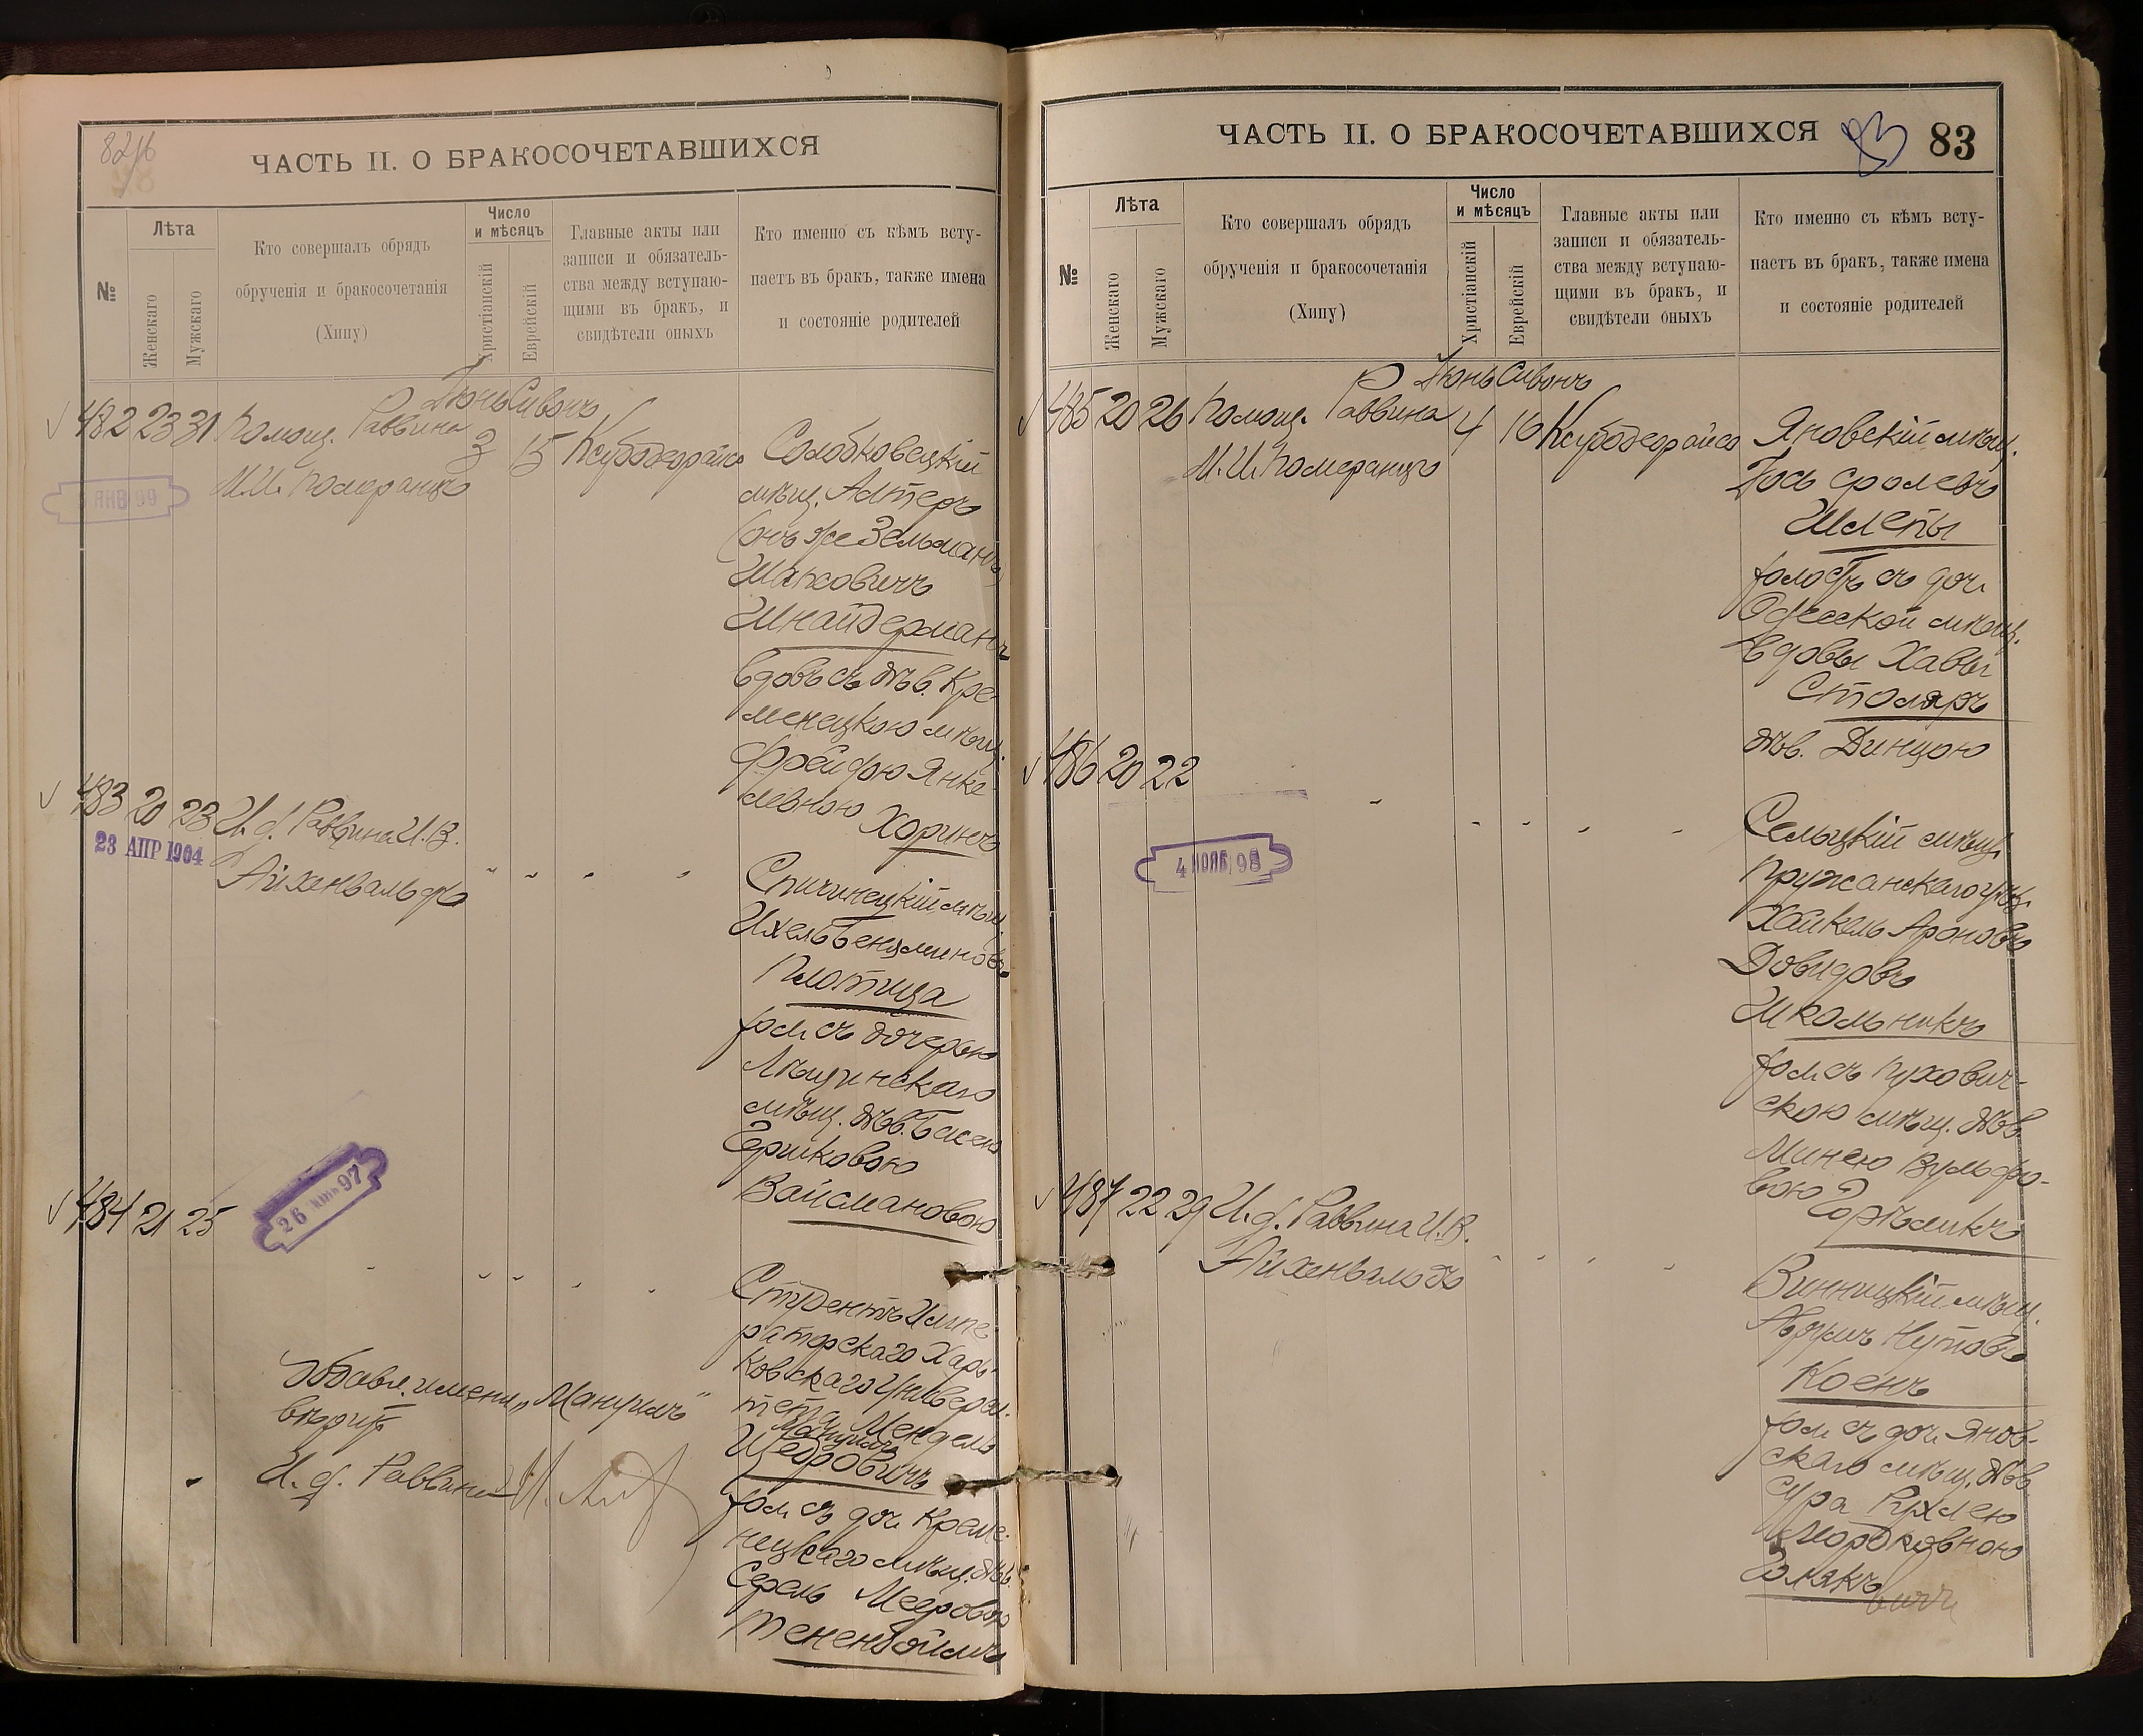 ЧАСТЬ II. О БРАКОСОЧЕТАВШИХСЯ
№
Лѣта
Женскаго
Мужскаго
Кто совершалъ обрядъ
обрученія и бракосочетанія
(Хипу)
Число
и мѣсяцъ
Христіанскій
Еврейскій
Главные акты или
записи и обязатель-
ства между вступаю-
щими въ бракъ, и
свидѣтели оныхъ
Кто именно съ кѣмъ всту-
паетъ въ бракъ, также имена
и состояніе родителей
Іюнь Сивонъ
482 23 31 Помощ. Раввина 3 15
М.И. Померанцъ
ЯНВ 99
Солобковецкій
мѣщ. Алтеръ
(онъ же Зельманъ)
Шапсовичъ
Шнайдерманъ
вдовъ съ дѣв. Кре
менецкою мѣщ.
Фрейдою Янке
левною Хоринъ
483 20 23 И. д. Раввина И. В.
Айхенвальдъ
23 АПР 1904
Спичинецкій мѣщ.
Ихель Бенцминовъ
Плотица
хол. съ дочерью
мѣщ. дѣв. Басею
Гершковою
Вайсмановою
484 21 25
26 97
Студентъ Импе-
раторскаго Харь-
ковскаго Универси-
тета Мендель
Манусъ
Щедровичъ
хол. съ доч. Креме-
нецкаго мѣщ. дѣв.
Серль Мееровою
Тененбоймъ
вѣрно
И. д. Раввина
ЧАСТЬ II. О БРАКОСОЧЕТАВШИХСЯ
83
83
№
Лѣта
Женскаго
Мужскаго
Кто совершалъ обрядъ
обрученія и бракосочетанія
(Хипу)
Число
и мѣсяцъ
Христіанскій
Еврейскій
Главные акты или
записи и обязатель-
ства между вступаю-
щими въ бракъ, и
свидѣтели оныхъ
Кто именно съ кѣмъ всту-
паетъ въ бракъ, также имена
и состояніе родителей
Іюнь Сивонъ
485 20 26 Помощ. Раввина 4 16
М. И. Померанцъ
Яновскій мѣщ.
Іось Сролевъ
Шлепы
холостъ съ доч.
Одесской мѣщ.
вдовы Хавы
Столяръ
дѣв. Динцою
486 20 22
4 НОЯБ 98
Селецкій мѣщ.
Пружанскаго уѣз.
Хайкель Ароновъ
Довидовъ
Школьникъ
хол. съ Пухович-
скою мѣщ. дѣв.
Минею Вульфо-
вою Горѣликъ
487 22 29 И. д. Раввина И. В.
Айхенвальдъ
Винницкій мѣщ.
Коенъ
хол. съ доч. Янов-
скаго мѣщ. дѣв.
Сура Рухлею
Мордковною